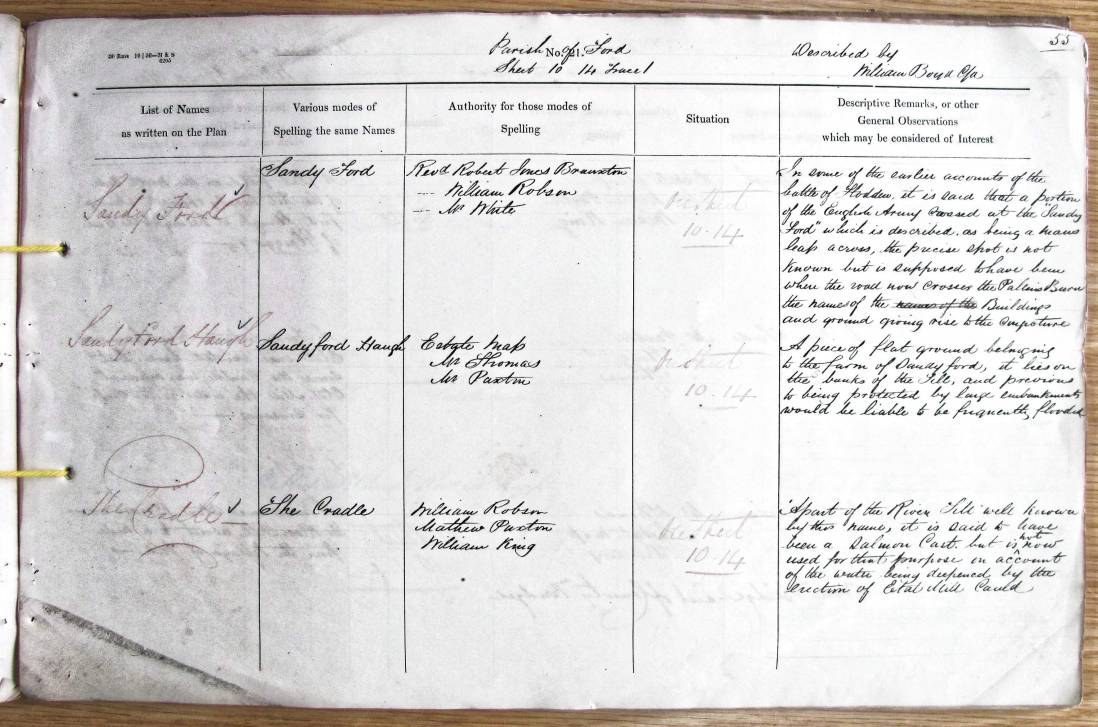 55
Parish of Ford
No. 21.
Described by
Sheet 10 14 Trace 1
William Boyd C/a
List of Names
as written on the Plan
Various modes of
Spelling the same Names
Authority for those modes of
Spelling
Situation
Descriptive Remarks, or other
General Observations
which may be considered of Interest
Sandy Ford
Sandy Ford
Revd Robert Jones Branxton
William Robson
Mr White
10.14
In some of the earlier accounts of the
battle of Flodden, it is said that a portion
of the English Army crossed at the "Sandy
Ford" which is described, as being a mans
leap across, the precise spot is not
known but is supposed to have been
where the road now crosses the Pallins Burn
the name of the names of the Buildings
and ground giving rise to the conjecture
Sandyford Haugh
Sandyford Haugh
Estate Map
Mr Thomas
Mr Paxton
10.14
A piece of flat ground belonging
to the farm of Sandyford, it lies on
the banks of the Till, and previous
to being protected by large embankments
would be liable to be frequently flooded
The Cradle
The Cradle
William Robson
Mathew Paxton
William King
10.14
A part of the River Till well known
by this name, it is said to have
been a Salmon Cast. but is not now
used for that purpose on account
of the water being deepened by the
erection of Etal Mill Cauld